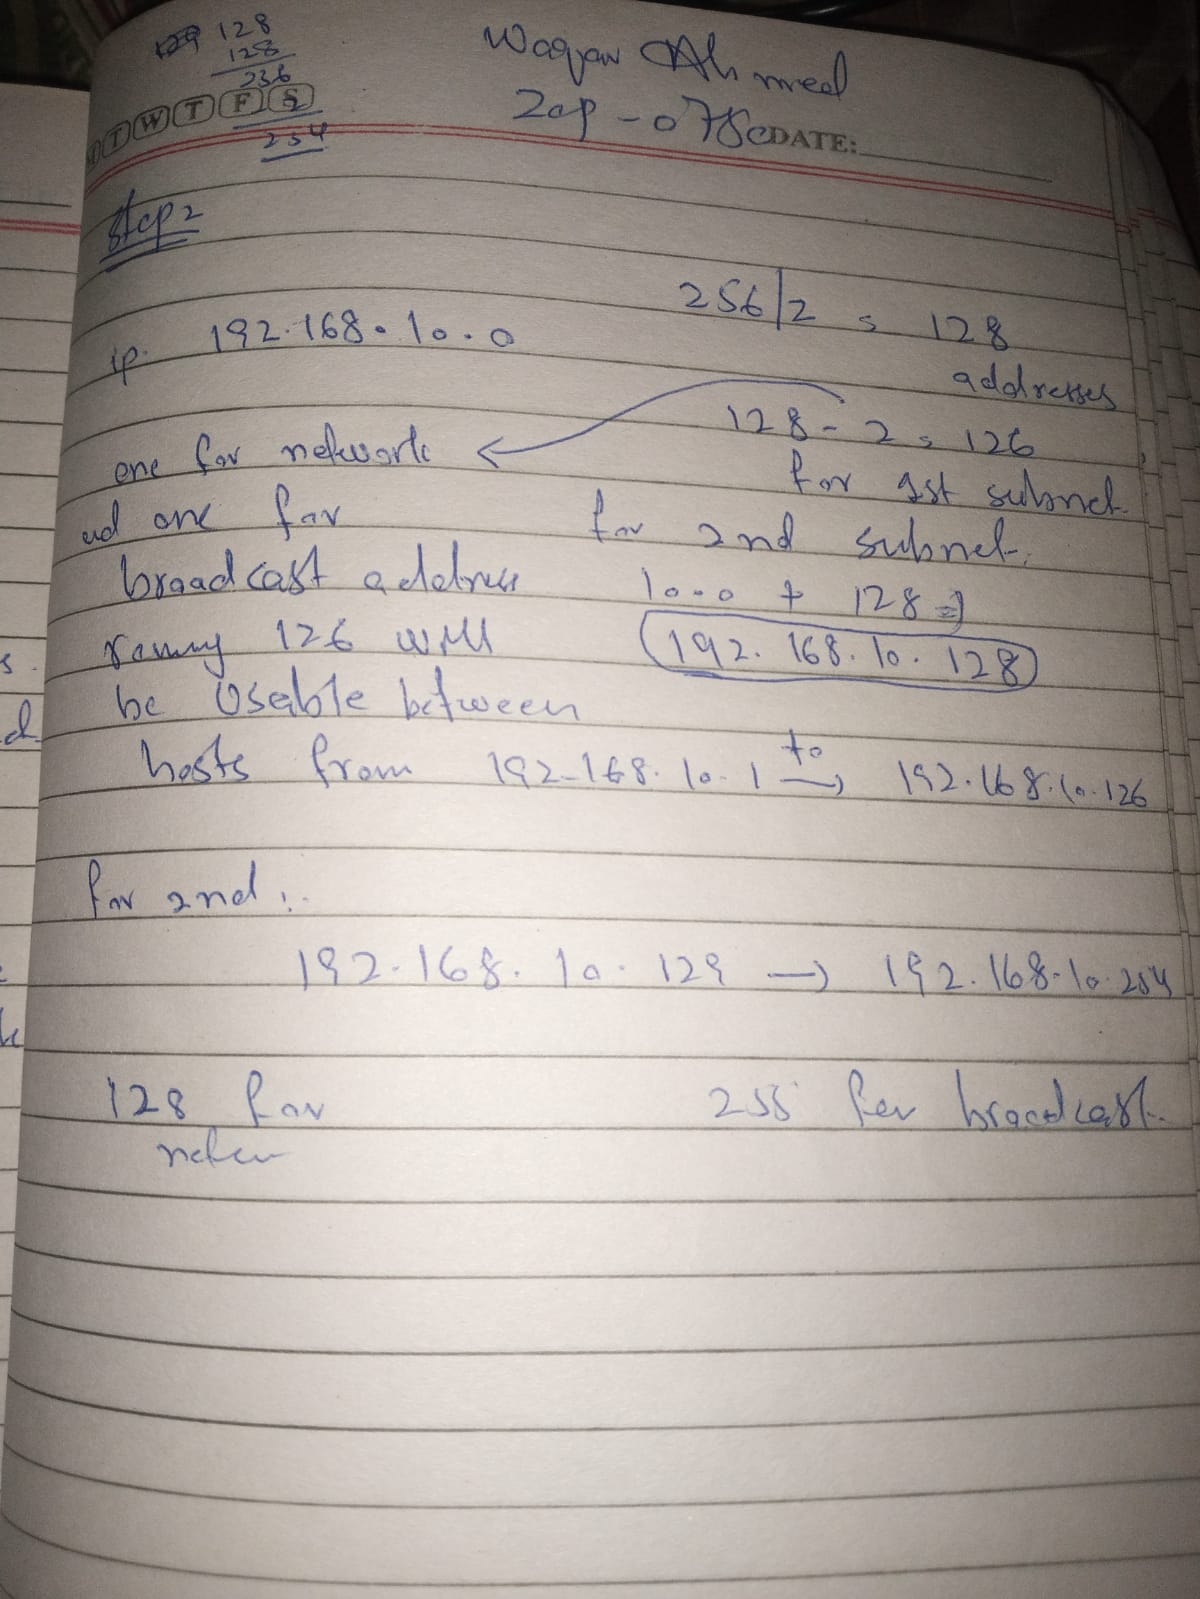 128
128
256
2
254
Waqar Ahmed
T W T F S
DATE:
Step 2
256/2 = 128
addresses
ip. 192.168.10.0
128 - 2 = 126
for 1st subnet
one for network
and one for
broadcast address
126 will
be Useable between
hosts from 192.168.10.1 to → 192.168.10.126
for 2nd subnet:
10.0 + 128 =>
192.168.10.128
for 2nd :-
192.168.10.129 → 192.168.10.254
128 for
255 for broadcast